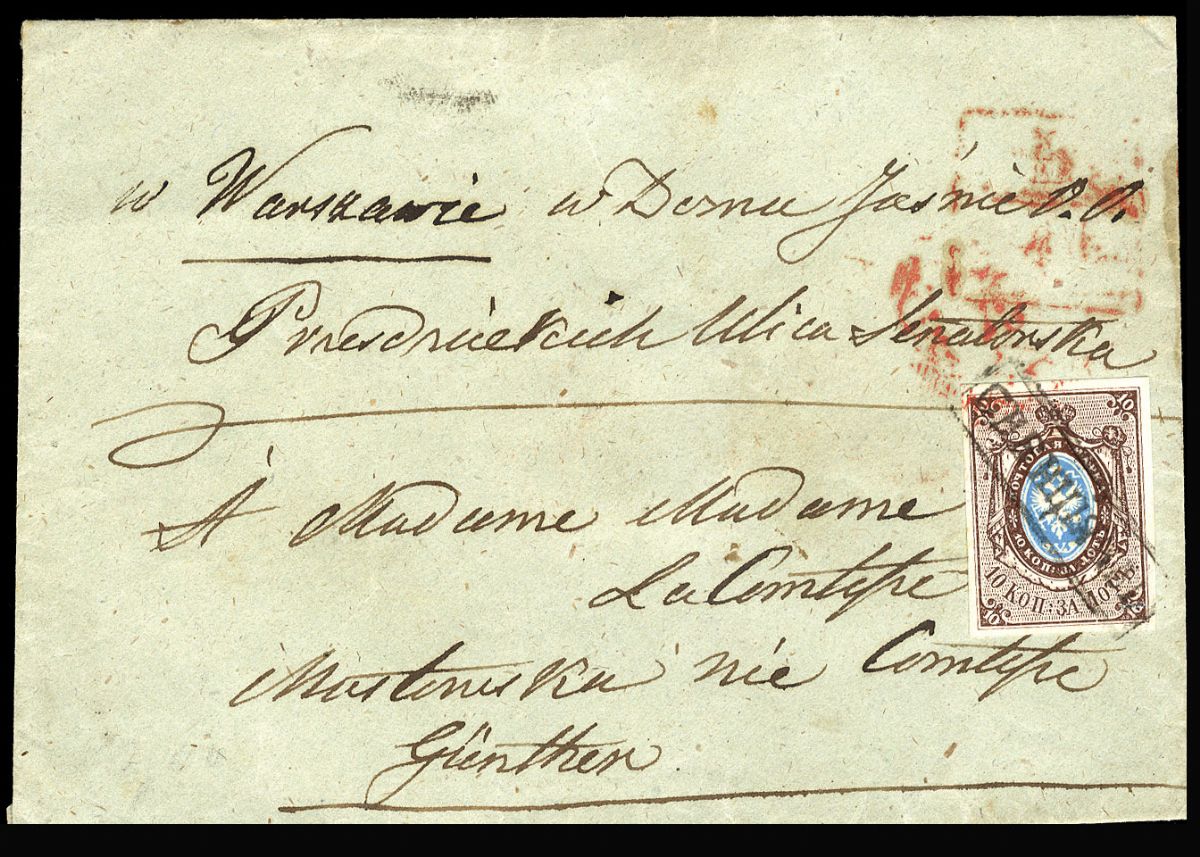 w Warszawie w Domu Jaśnie P. P.
Przesdzieckich Ulica Senatorska
À Madame Madame
La Comtesse
Mostowska née Comtesse
Günther
10 10
ПОЧТОВАЯ МАРКА
10 КОП: ЗА ЛОТЪ
10 КОП: ЗА ЛОТЪ.
10 10